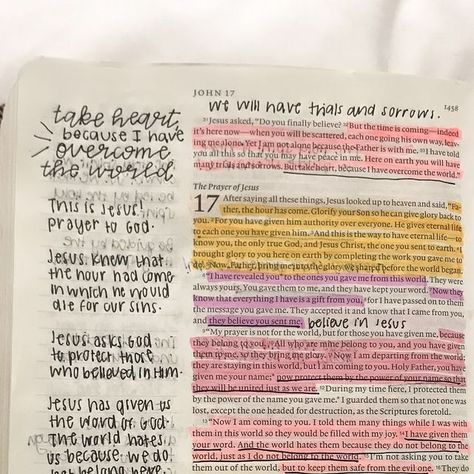 JOHN 17
1458
we will have trials and sorrows.
take heart,
because I have
overcome
the world
This is Jesus'
prayer to God.
Jesus knew that
the hour had come
in which he would
die for our sins.
Jesus asks God
to protect those
who believed in Him.
Jesus has given us
the word of God.
The world hates
us because we do
not belong here.
31Jesus asked, "Do you finally believe? 32But the time is coming—indeed
it's here now—when you will be scattered, each one going his own way, leav-
ing me alone. Yet I am not alone because the Father is with me. 33I have told
you all this so that you may have peace in me. Here on earth you will have
many trials and sorrows. But take heart, because I have overcome the world."
The Prayer of Jesus
17 After saying all these things, Jesus looked up to heaven and said, "Fa-
ther, the hour has come. Glorify your Son so he can give glory back to
you. 2For you have given him authority over everyone. He gives eternal life
to each one you have given him. 3And this is the way to have eternal life—to
know you, the only true God, and Jesus Christ, the one you sent to earth. 4I
brought glory to you here on earth by completing the work you gave me to
do. 5Now, Father, bring me into the glory we shared before the world began.
6"I have revealed you to the ones you gave me from this world. They were
always yours. You gave them to me, and they have kept your word. 7Now they
know that everything I have is a gift from you, 8for I have passed on to them
the message you gave me. They accepted it and know that I came from you,
and they believe you sent me. believe in Jesus
9"My prayer is not for the world, but for those you have given me, because
they belong to you. 10All who are mine belong to you, and you have given
them to me, so they bring me glory. 11Now I am departing from the world;
they are staying in this world, but I am coming to you. Holy Father, you have
given me your name; now protect them by the power of your name so that
they will be united just as we are. 12During my time here, I protected them
by the power of the name you gave me. I guarded them so that not one was
lost, except the one headed for destruction, as the Scriptures foretold.
13"Now I am coming to you. I told them many things while I was with
them in this world so they would be filled with my joy. 14I have given them
your word. And the world hates them because they do not belong to the
world, just as I do not belong to the world. 15I'm not asking you to take
them out of the world, but to keep them safe from the evil one.